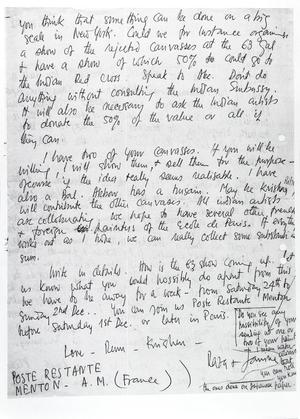 you think that something can be done on a big
scale in New York. Could we for instance organise
a show of the rejected canvasses at the 63 Gal
+ have a show of which 50% to could go to
the Indian Red Cross. Speak to Abe. Don't do
anything without consulting the Indian Embassy.
It will also be necessary to ask the Indian artists
to donate the 50% of the value or all if
they can.
I have two of your canvasses. If you will be
willing, I will show them, + sell them for the purpose -
ofcourse if the idea really seems realisable. I have
also a Bal. Akbar has a husain. May be Krishna
will contribute the other canvasses. All indian artists
are collaborating. We hope to have several other french
+ foreign painters of the Ecole de Paris. If
works out as I hope, we can really collect some substantial
sum.
Write in details. How is the 63 show coming up. Let
us know what you could possibly do about this
we have to be away for a week - from Saturday 24th to
Sunday 2nd Dec. You can join us Poste Restante Menton
before Saturday 1st Dec. or later in Paris.
Love -
Raza + Janine
POSTE RESTANTE
MENTON - A.M. (France)
Do you see any
possibility of your
sending us one or
two of your
you can
the ones done on Japanese paper.